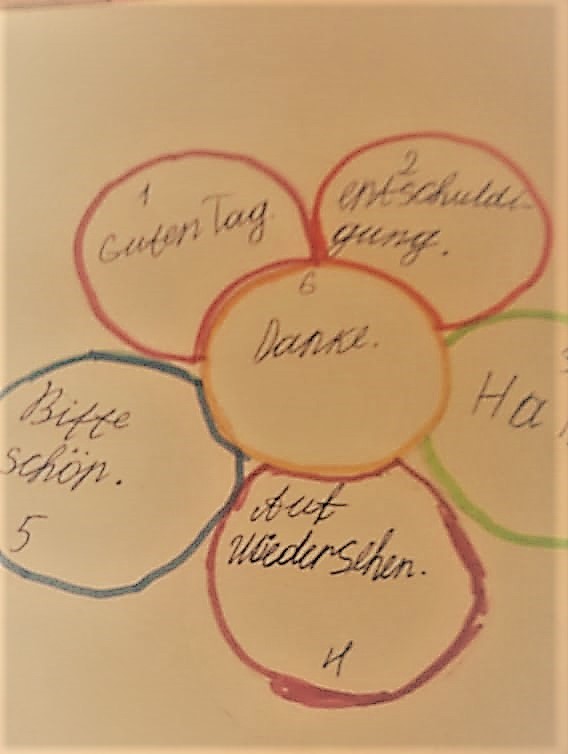 1
Guten Tag.
2
entschuldi-
gung.
6
Danke.
3
Ha
Bitte
schön.
5
Auf
Wiedersehen.
4